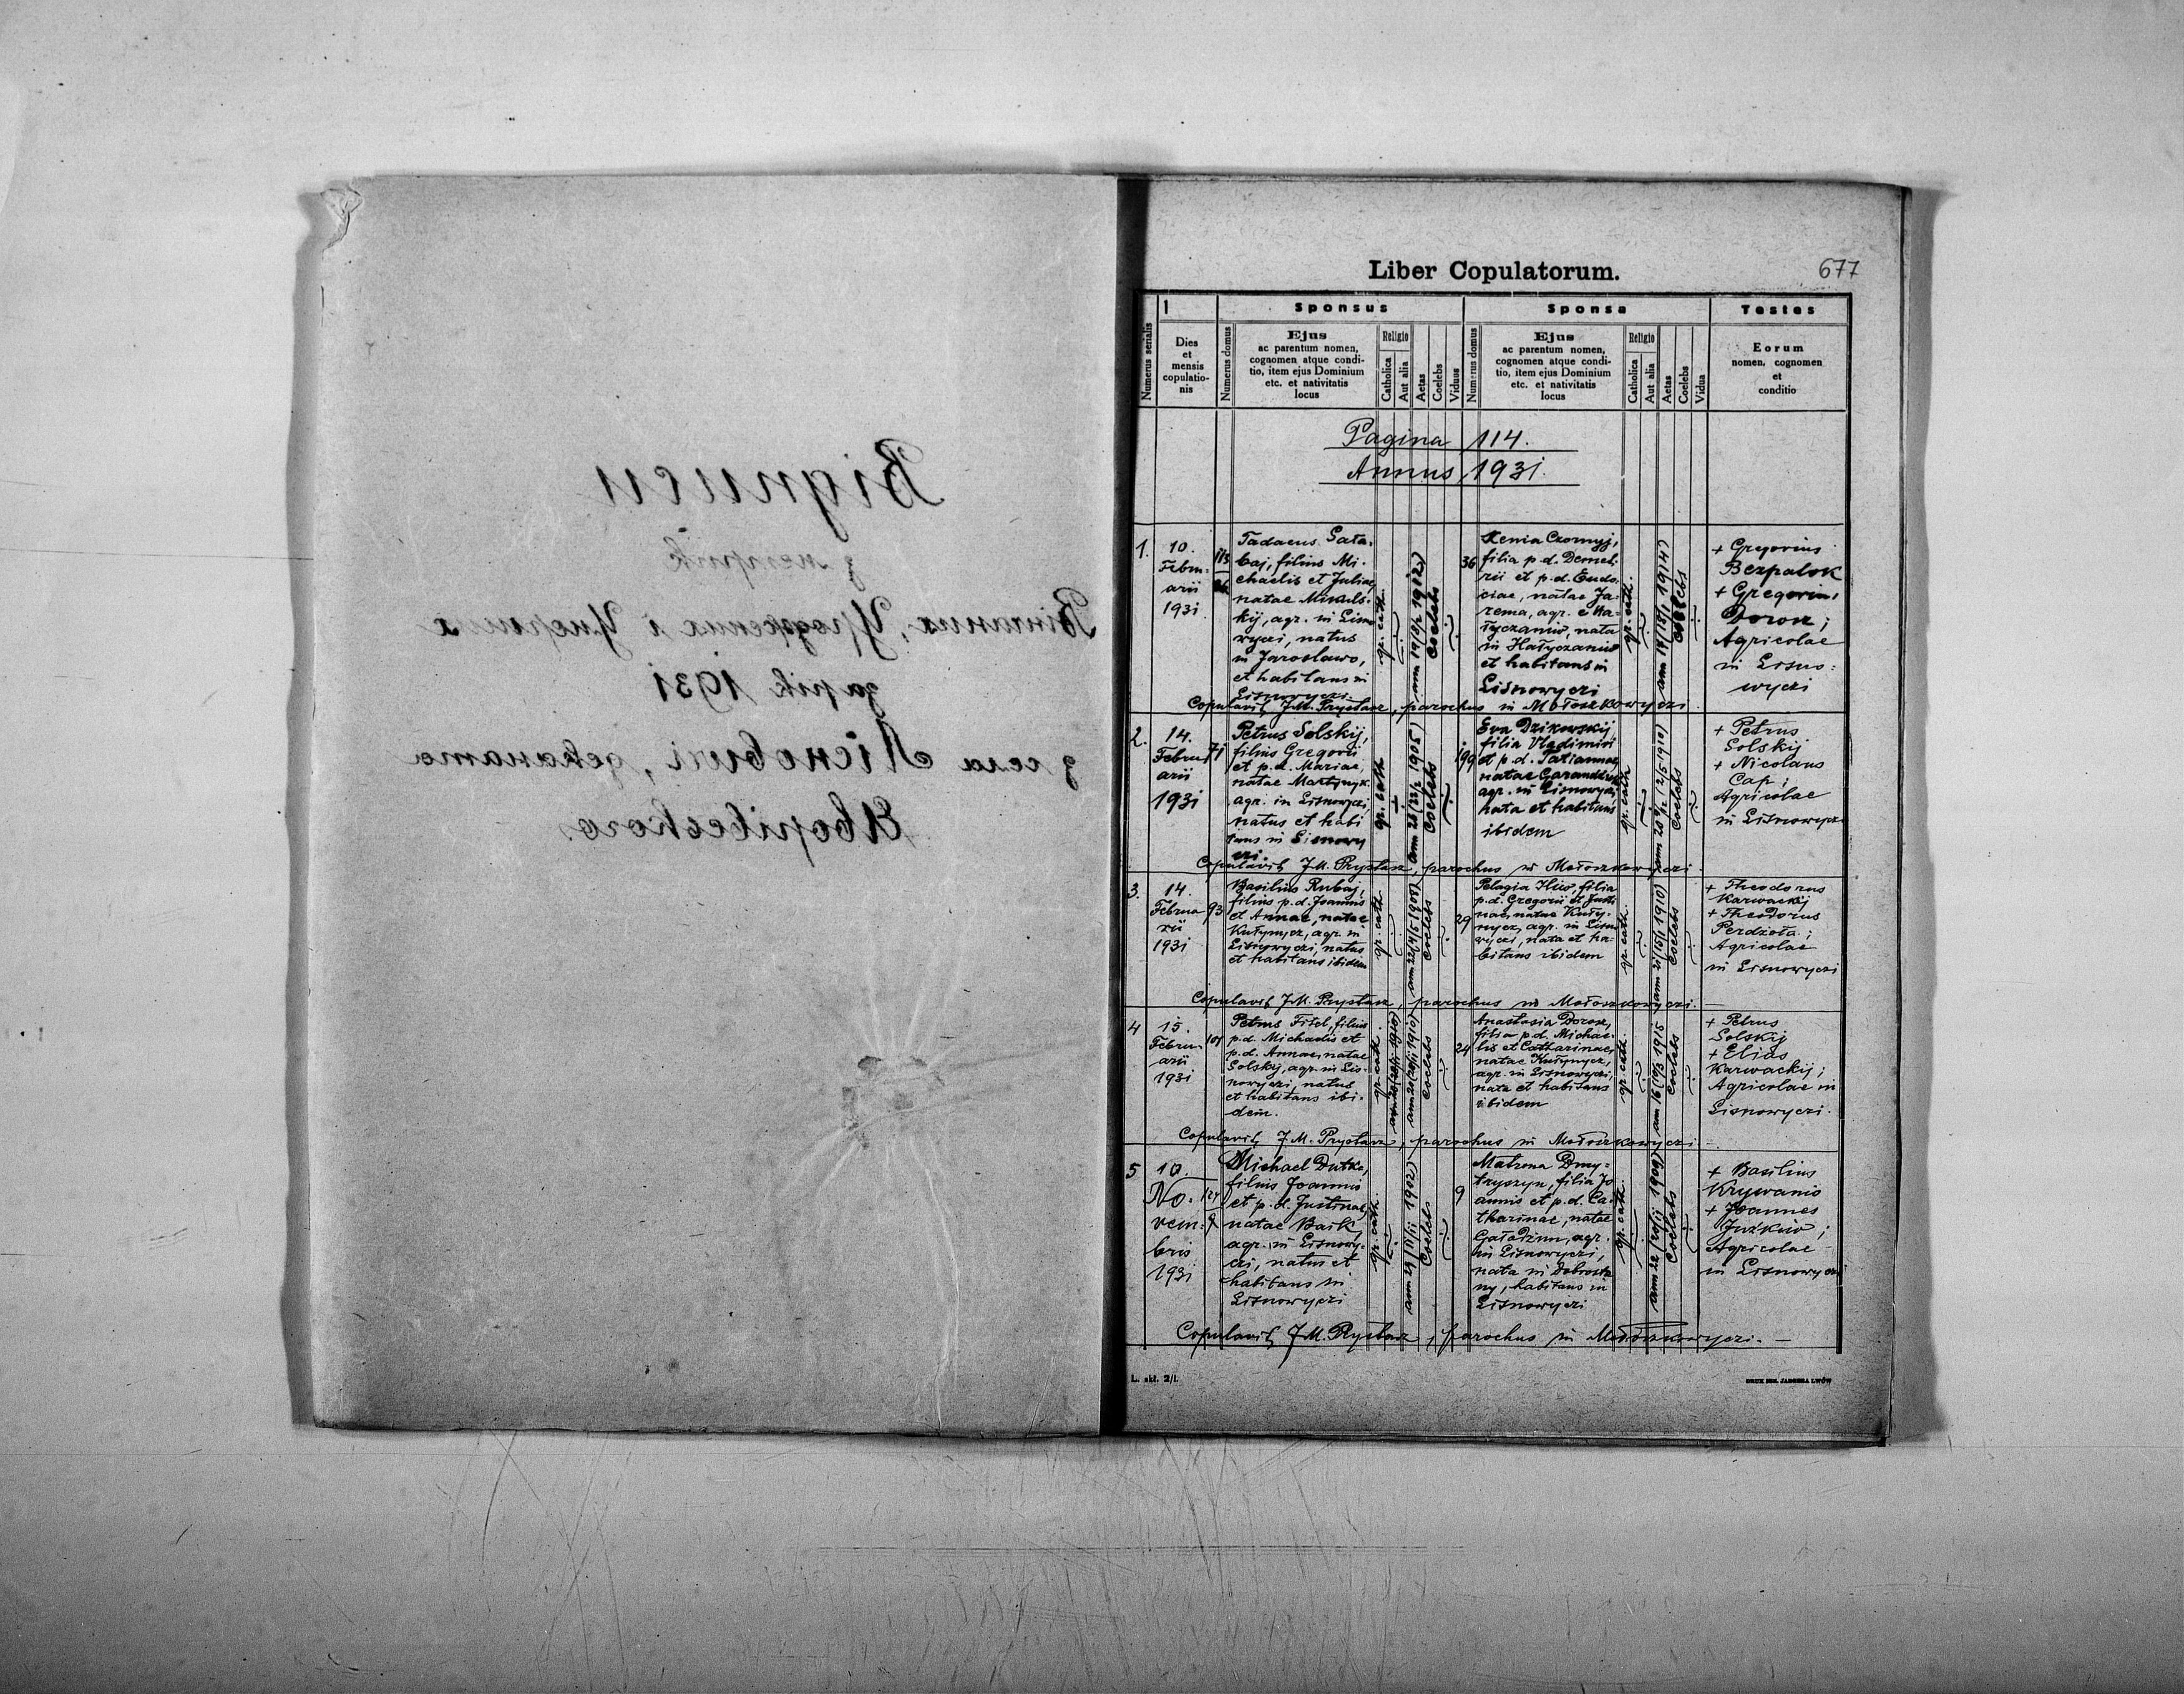 Відписи
з метрик
Вінчаних, Уроджених і Умерших
за рік 1931
з села Лісновичі, деканата
Яворівського.
677
Liber Copulatorum.
Numerus serialis
1
Dies
et
mensis
copulatio-
nis
Sponsus
Numerus domus
Ejus
ac parentum nomen,
cognomen atque condi-
tio, item ejus Dominium
etc. et nativitatis
locus
Religio
Catholica
Aut alia
Aetas
Coelebs
Viduus
Sponsa
Numerus domus
Ejus
ac parentum nomen,
cognomen atque condi-
tio, item ejus Dominium
etc. et nativitatis
locus
Religio
Catholica
Aut alia
Aetas
Coelebs
Vidua
Testes
Eorum
nomen, cognomen
et
conditio
Pagina 114.
Annus 1931.
1.
10.
Febru-
arii
1931
113
Tadaeus Sała-
baj, filius Mi-
chaelis et Juliae,
natae Mikuls-
kij, agr. in Lisno
wyczi, natus
in Jarosławo,
et habitans in
Lisnowyczi.
gr. cath.
ann 19 (8/2 1912)
Coelebs
36
Xenia Czornyj,
filia p.d. Demet-
rii et p.d. Eudo-
ciae, natae Ja-
rema, agr. e Ha-
łyczaniw, nata
in Hałyczaniw
et habitans in
Lisnowyczi
gr. cath.
ann 17 (18/1 1914)
Coelebs
+ Gregorius
Bezpalok
+ Gregorius
Dorosz;
Agricolae
in Lisno-
wyczi
Copulavit J.M. Prystasz, parochus in Mołoszkowyczi.
2.
14.
Febru
arii
1931
71
Petrus Solskij,
filius Gregorii
et p.d. Mariae,
natae Martynyk
agr. in Lisnowyczi,
natus et habi
tans in Lisnowy
czi.
gr. cath
Coelebs
199
Eva Dzikowskij
filia Vladimiri
et p.d. Tatiannae,
natae
agr. in Lisnowyczi
nata et habitans
ibidem
gr. cath
ann 20 9/12 (2/5 1910)
Coelebs
+ Petrus
Solskij
+ Nicolaus
Cap;
Agricolae
in Lisnowycz
Copulavit J.M. Prystasz, parochus in Mołoszkowyczi.
3.
14.
Februa
rii
1931
93
Basilius Rubaj,
filius p.d. Joannis
et Annae, natae
Kułynycz, agr. in
Lisnowyczi, natus
et habitans ibidem
gr. cath
Coelebs
29
Pelagia Iliw, filia
p.d. Gregorii et Justi
nae, natae Kuły-
nycz, agr. in Lisno
wyczi, nata et ha-
bitans ibidem
gr. cath.
ann 21 (15/1 1910)
Coelebs
+ Theodorus
Karwackij
+ Theodorus
Perdzota;
Agricolae
in Lisnowyczi
Copulavit J.M. Prystasz, parochus in Mołoszkowyczi. —
4
15.
Febru-
arii
1931
101
Petrus Fitel, filius
p.d. Michaelis et
p.d. Annae, natae
Solskij, agr. in Lis-
nowyczi, natus
et habitans ibi-
dem.
gr. cath.
ann 20 (20/11 1910)
Coelebs
24
Anastasia Dorosz,
filia p.d. Michae-
lis et Catharinae,
natae Kułynycz,
agr. in Lisnowyczi,
nata et habitans
ibidem
gr. cath.
Coelebs
+ Petrus
Solskij
+ Elias
Karwackij;
Agricolae in
Lisnowyczi.
Copulavit J.M. Prystasz, parochus in Mołoszkowyczi —
5
10.
No-
vem-
bris
1931
124
9
Michael Dutka,
filius Joannis
et p.d. Justinae,
natae Baik
agr. in Lisnowy-
czi, natus et
habitans in
Lisnowyczi
gr. cath.
ann 29 (1/11 1902)
Coelebs
9
Matrona Dmy-
tryszyn, filia Jo
annis et p.d. Ca-
tharinae, natae
Gaładzun, agr.
in Lisnowyczi,
nata in Dobrosta
ny, habitans in
Lisnowyczi
gr. cath.
ann 22 (20/11 1909)
Coelebs
+ Basilius
Krywanio
+ Joannes
Juzkiw;
Agricolae
in Lisnowyczi
Copulavit J.M. Prystasz, parochus in Mołoszkowyczi. —